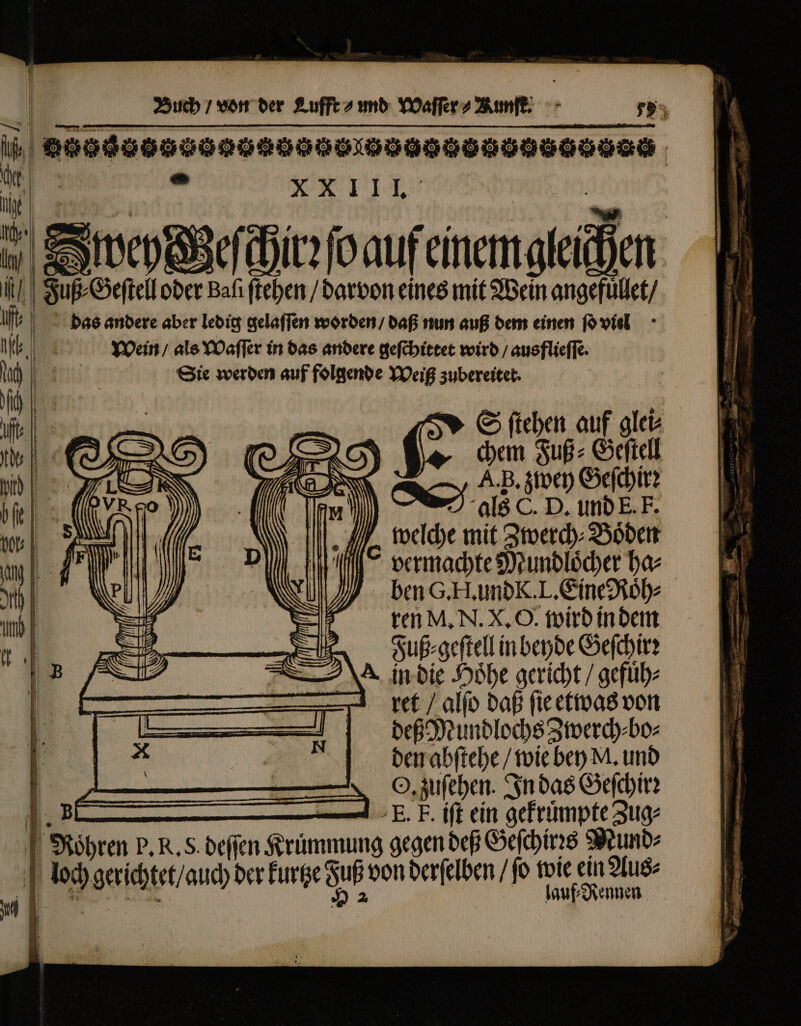 Buch / von der Lufft⸗ und Waſſer⸗Kunſt. 59
XXIII.
Zwey Geſchirꝛ ſo auf einem gleichen
Fuß⸗Geſtell oder Baſi ſtehen / darvon eines mit Wein angefuͤllet /
das andere aber ledig gelaſſen worden / daß nun auß dem einen ſo viel
Wein / als Waſſer in das andere geſchittet wird / ausflieſſe.
Sie werden auf folgende Weiß zubereitet.
ES ſtehen auf glei⸗
chem Fuß⸗Geſtell
A.B. zwey Geſchirꝛ
als C. D. und E. F.
welche mit Zwerch⸗Boͤden
vermachte Mundloͤcher ha⸗
ben G.H. und K.L. Eine Roͤh⸗
ren M. N. X. O. wird in dem
Fuß⸗geſtell in beyde Geſchirꝛ
in die Hoͤhe gericht / gefuͤh⸗
ret / alſo daß ſie etwas von
deß Mundlochs Zwerch⸗bo⸗
den abſtehe / wie bey M. und
O. zuſehen. In das Geſchirꝛ
E. F. iſt ein gekruͤmpte Zug⸗
Roͤhren P. R. S. deſſen Kruͤmmung gegen deß Geſchirꝛs Mund⸗
loch gerichtet / auch der kurtze Fuß von derſelben / ſo wie ein Aus⸗
H 2 lauf⸗Rennen
L
V R O
S
F E
P
M
D C
B A
X N
B